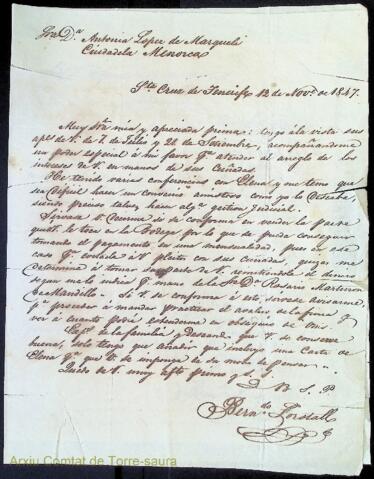 Sra. Da. Antonia Lopez de Marqueli
Ciudadela Menorca
Sta. Cruz de Tenerife 12 de Novre. de 1847.
Muy Sra. mia y apreciada prima: tengo á la vista sus
apdas. de V. de 2 de Julio y 22 de Setiembre, acompañandome
un poder especial á mi favor pa. atender al arreglo de los
intereses de V. en manos de sus Cuñadas.
He tenido varias conferencias con Elena y me temo que
sea dificil hacer un convenio amistoso como yo lo deseaba,
siendo preciso talvez hacer alga. gestion judicial.
Sirvase V. decirme si se conforma en vender la parte
que le toca en la Bodega por lo que se pueda conseguir
tomando el pagamento en una mensualidad, pues en ese
caso pa. evitarla á V. pleito con sus Cuñadas, quizas me
determine á tomar su parte de V. remitiendole el dinero
segun me lo indica pr. mano de la Sra. Da. Rosario Martinon
de Mandillo. Si V. se conforma á esto, sirvase avisarme
pa. proceder á mandar practicar el avaluo de la finca y
ver á cuanto podré estenderme en obsequio de V.
de la familia y deseando que V. se conserve
buena, solo tengo que añadir que incluyo una Carta de
Elena pa. que V. se imponga de su modo de pensar.
Quedo de V. muy afto. primo y S. S.
Q. B. S. P.
Berndo. Forstall
Arxiu Comtat de Torre-saura